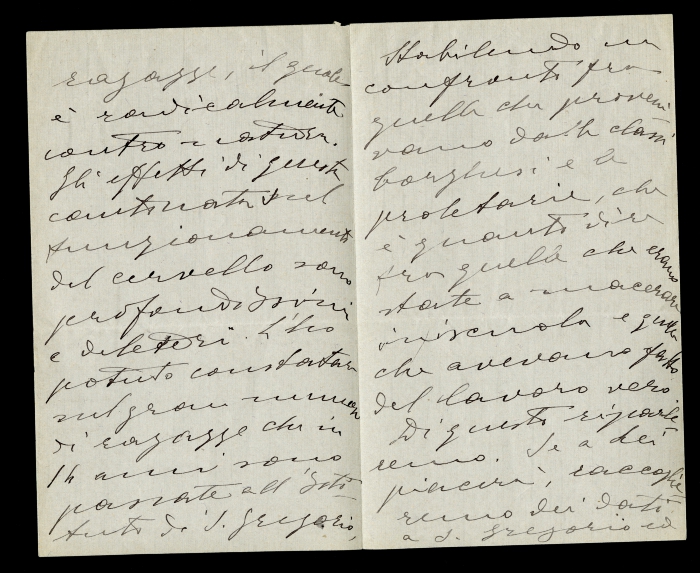 ragazzi, il quale
è radicalmente
contro natura.
Gli effetti di questa
contronatura sul
funzionamento
del cervello sono
profondissimi
e deleteri. L'ho
potuto constatare
sul gran numero
di ragazze che in
14 anni sono
passate all'Isti-
tuto di S. Gregorio,
Stabilendo un
confronto fra
quelle che proveni
vano dalle classi
borghesi e le
proletarie, che
è quanto dire
fra quelle che erano
state a macerarsi
in iscuola e quelle
che avevano fatto
del lavoro vero.
Di questo riparle-
remo. Se a Lei
piacerà, raccoglie
remo dei dati
a S. Gregorio ed